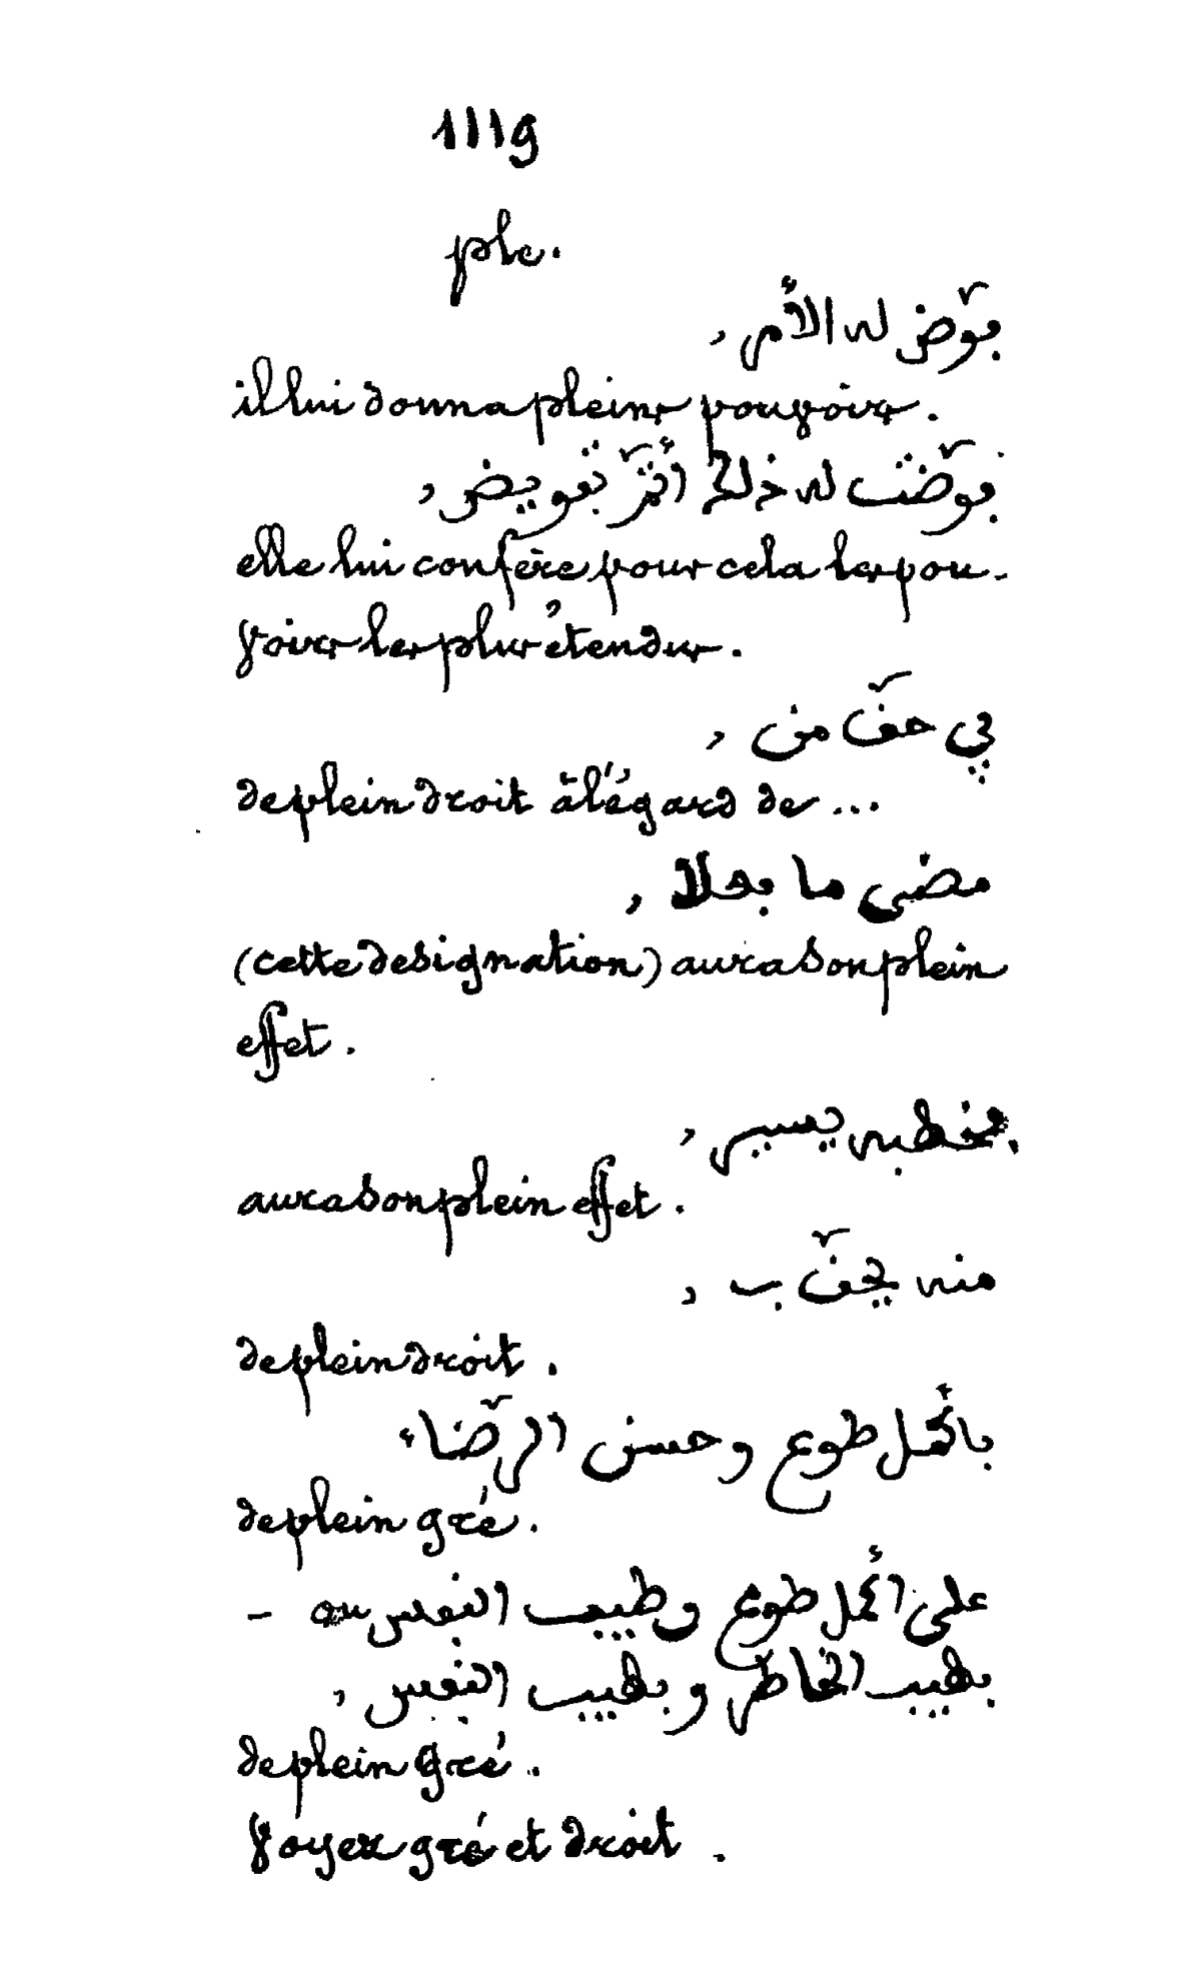 1119
ple.
فوّض له الأمر ,
il lui donna pleins pouvoirs.
فوّضت له ذلك أتمّ تفويض ,
elle lui confère pour cela les pou-
voirs les plus étendus.
في حقّ من ,
de plein droit à l'égard de ...
مضى ما فعلا ,
(cette designation) aura son plein
effet.
فخطبه يسير ,
aura son plein effet.
منه يحقّ ب ,
de plein droit.
بأكمل طوع وحسن الرّضاء
de plein gré.
على أكمل طوع وطيب النفس ou -
بطيب الخاطر وبطيب النفس ,
de plein gré.
Voyez gré et droit.